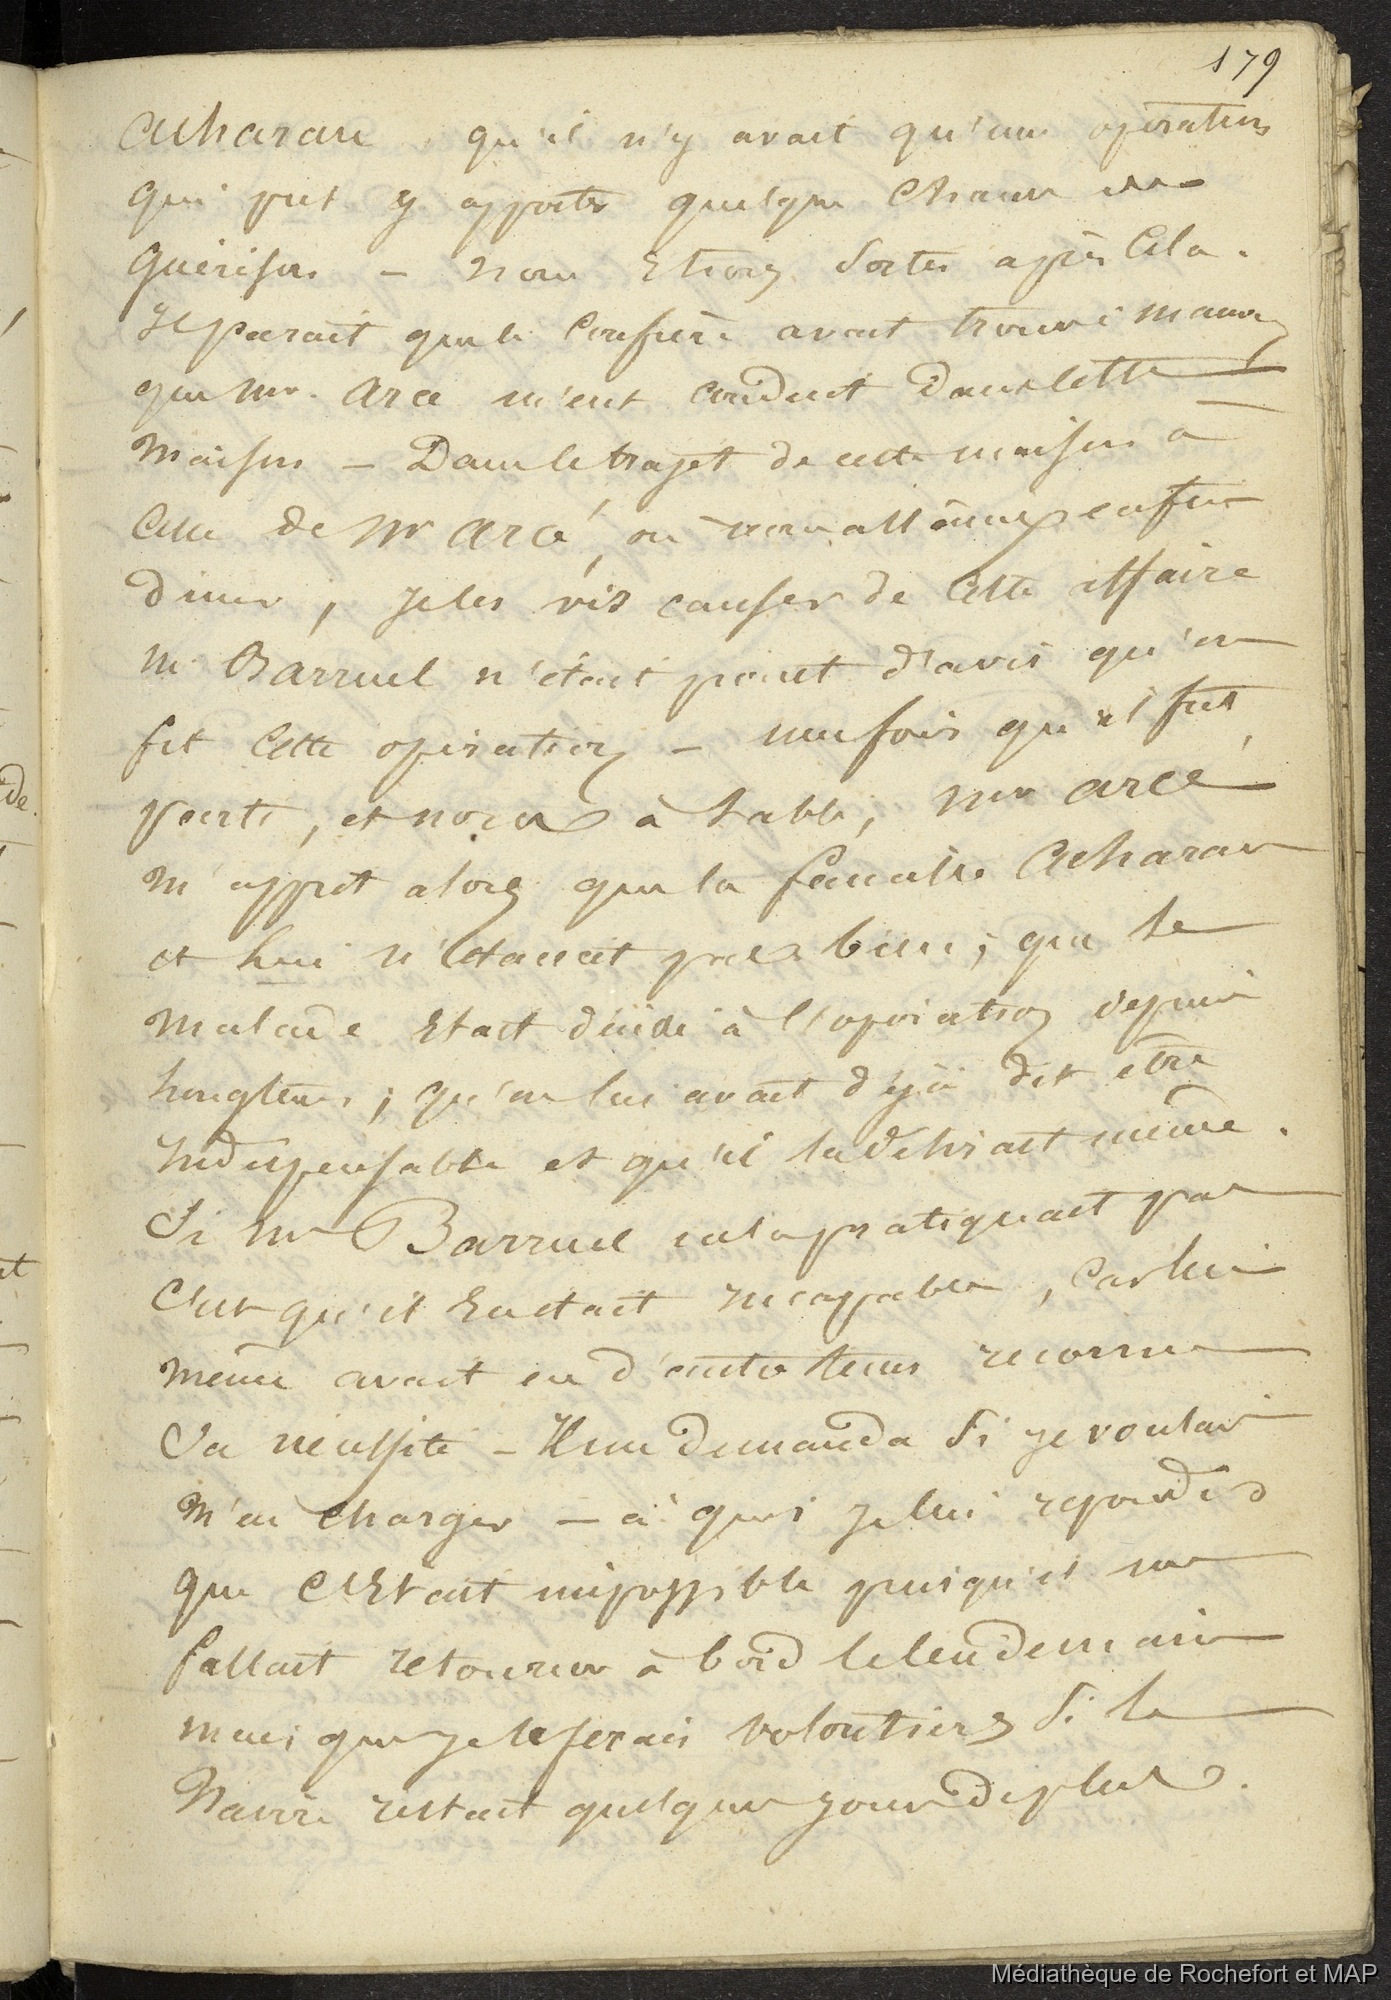 179
Acharau qu'il n'y avait qu'une opération
qui put y apporter quelque chance de
Guérison – nous etions sortis après cela.
Il parait que le confrère avait trouvé mauvais
que Mr. Arcé m'eut conduit dans cette
maison – Dans le trajet de cette maison à
celle de Mr Arcé, où nous allâmes enfin
diner, je les vis causer de cette affaire
Mr Barruel n'était point d'avis qu'on
fit cette opération – une fois qu'il fut
parti, et nous à table, Mr Arcé
m'apprit alors que la famille Acharau
et lui n'etaient pas bien ; que le
malade etait décidé à l'opération depuis
longtems ; qu'on lui avait déjà dit être
indispensable et qu'il la desirait même.
Si Mr Barruel ne la pratiquait pas
c'est qu'il en etait incapable, car lui
même avait en d'autre tems reconnu
sa nécessité – Il me demanda si je voulais
m'en charger – à quoi je lui repondis
que c'etait impossible puisqu'il me
fallait retourner à bord le lendemain
mais que je le ferais volontiers si le
Navire restait quelques jours de plus.
de.
et
Médiathèque de Rochefort et MAP